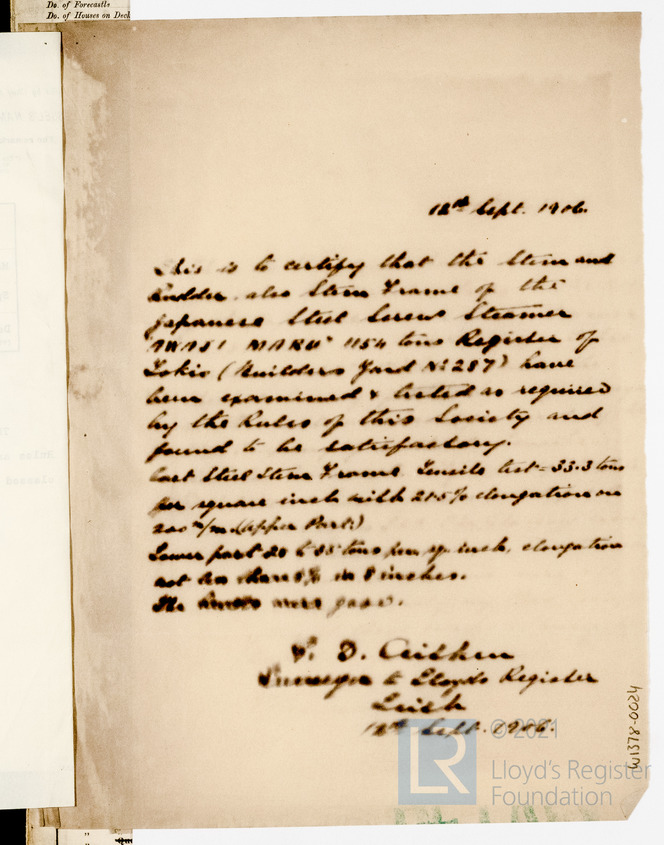 Do. of Forecastle
Do. of Houses on Deck
12th Sept. 1906.
This is to certify that the Stem and
Rudder, also Stern Frame of the
Japanese Steel Screw Steamer
"AWAJI MARU" 1154 tons Register of
Tokio (Builders Yard No 287) have
been examined & tested as required
by the Rules of this Society and
found to be satisfactory.
Cast Steel Stern Frame Tensile test = 33.3 tons
per square inch with 21.5% elongation on
200 m/m (Upper Part)
Lower part to 35 tons per sq. inch, elongation
not less than in 8 inches.
The were good.
D. Aitken
Surveyor to Lloyds Register
Leith
12th Sept. 1906.
W1378-0024
LR
© 2021
Lloyd's Register
Foundation